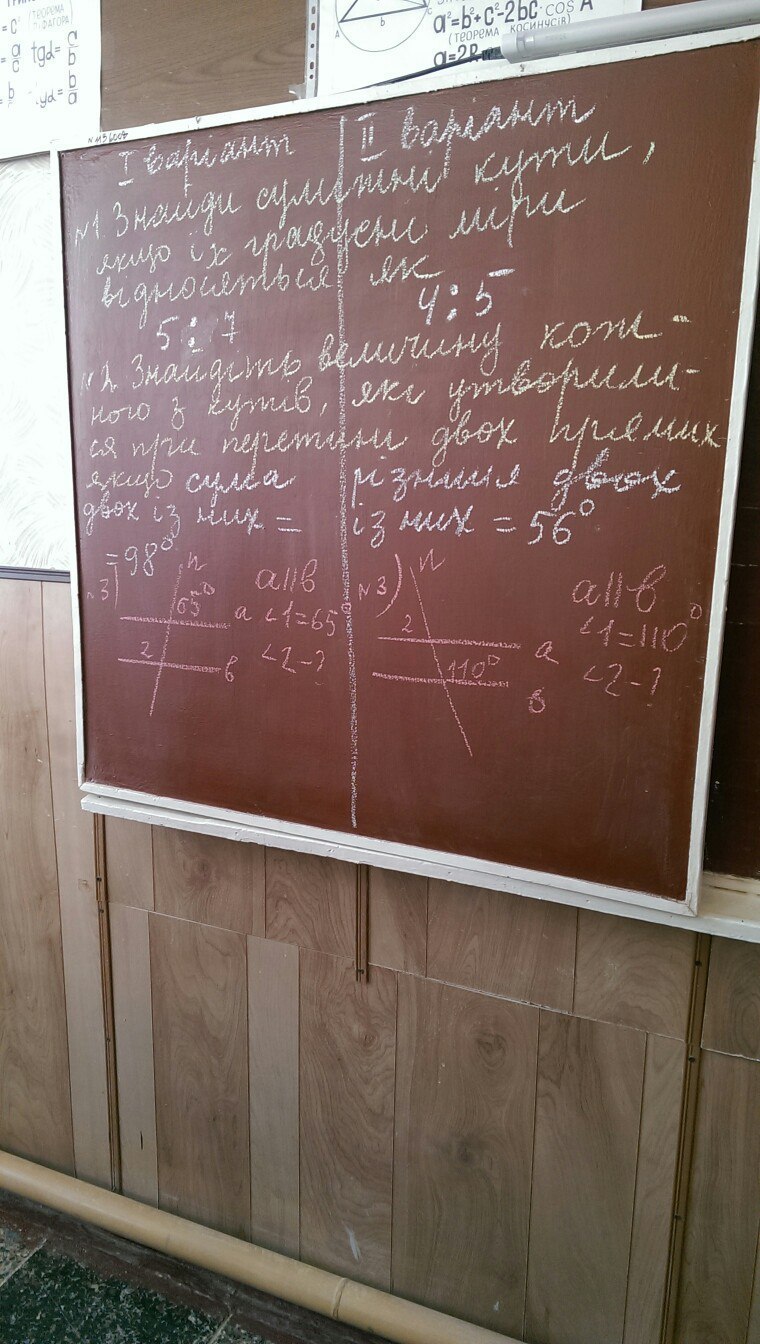 = c² (ТЕОРЕМА
tgα = a/b
a² = b² + c² - 2bc · COS A
(ТЕОРЕМА КОСИНУСІВ)
A
b
c
І варіант
ІІ варіант
№1 Знайди суміжні кути,
якщо їх градусні міри
відносяться як
5 : 7
4 : 5
№2 Знайдіть величину кож-
ного з кутів, які утворили-
ся при перетині двох прямих
якщо сума
двох із них =
= 98°
різниця двох
із них = 56°
№3)
n
65°
a
2
в
a||в
<1=65
<2-?
№3)
n
2
a
110°
в
a||в
<1=110°
<2-?